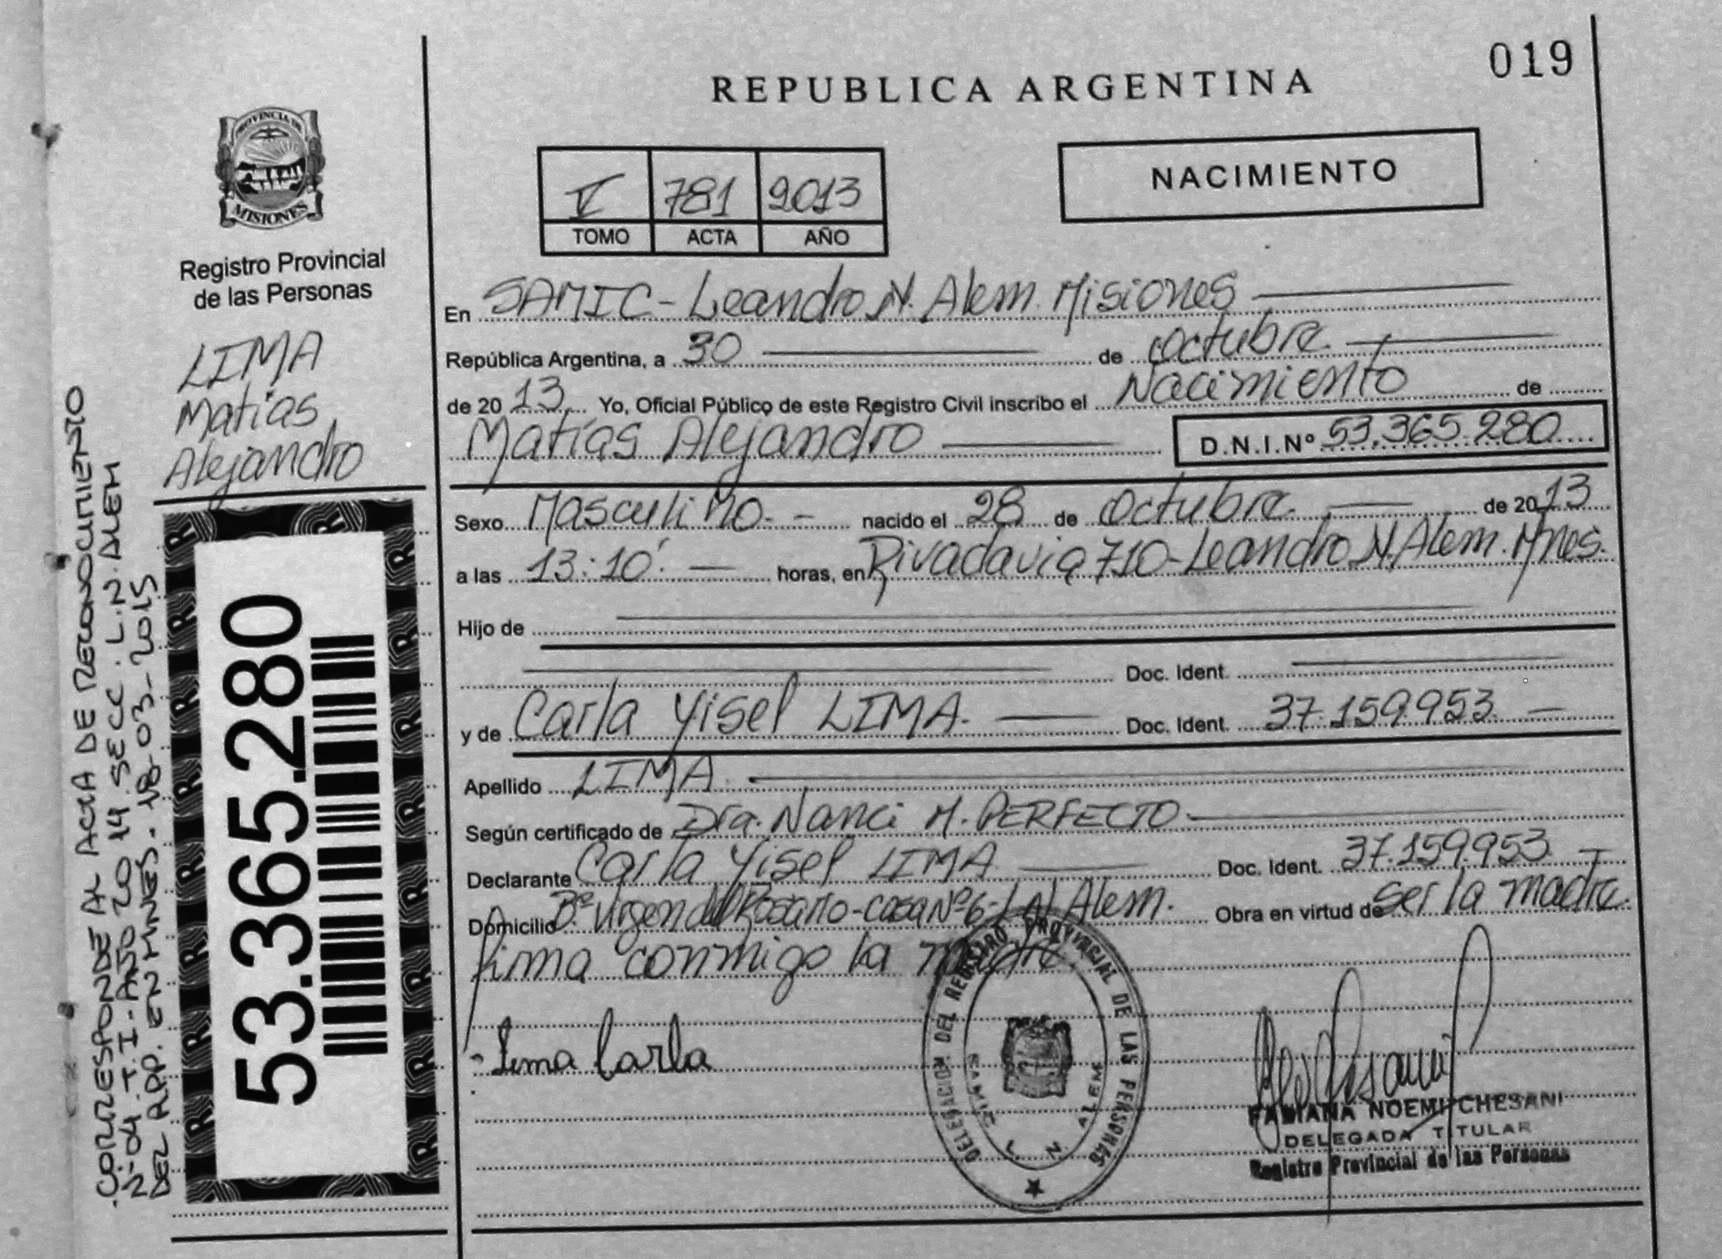 019
REPUBLICA ARGENTINA
NACIMIENTO
V 781 2013
TOMO ACTA AÑO
PROVINCIA DE
MISIONES
Registro Provincial
de las Personas
LIMA
Matías
Alejandro
53.365.280
CORRESPONDE AL ACTA DE RECONOCIMIENTO
Nº 04 - T. I - AÑO 2014 SECC. L.N. ALEM
DEL RPP. EN MNES. 18-03-2015
En SAMIC - Leandro N. Alem. Misiones
República Argentina, a 30 de octubre
de 2013 Yo, Oficial Público de este Registro Civil inscribo el Nacimiento de
Matías Alejandro D.N.I.Nº 53.365.280
Sexo Masculino. - nacido el 28 de octubre. de 2013
a las 13:10'. horas, en Rivadavia 710 - Leandro N. Alem. Mnes.
Hijo de
Doc. Ident.
y de Carla Yisel LIMA. Doc. Ident. 37.159.953
Apellido LIMA
Según certificado de Dra. Nanci M. PERFECTO
Declarante Carla Yisel LIMA Doc. Ident. 37.159.953
Domicilio Bº Virgen del Rosario - casa Nº 6 - L.N. Alem. Obra en virtud de ser la madre.
firma conmigo la madre.
Lima Carla
DELEGACION DEL REGISTRO PROVINCIAL DE LAS PERSONAS
SAMIC L. N. ALEM
FABIANA NOEMI CHESANI
DELEGADA TITULAR
Registro Provincial de las Personas